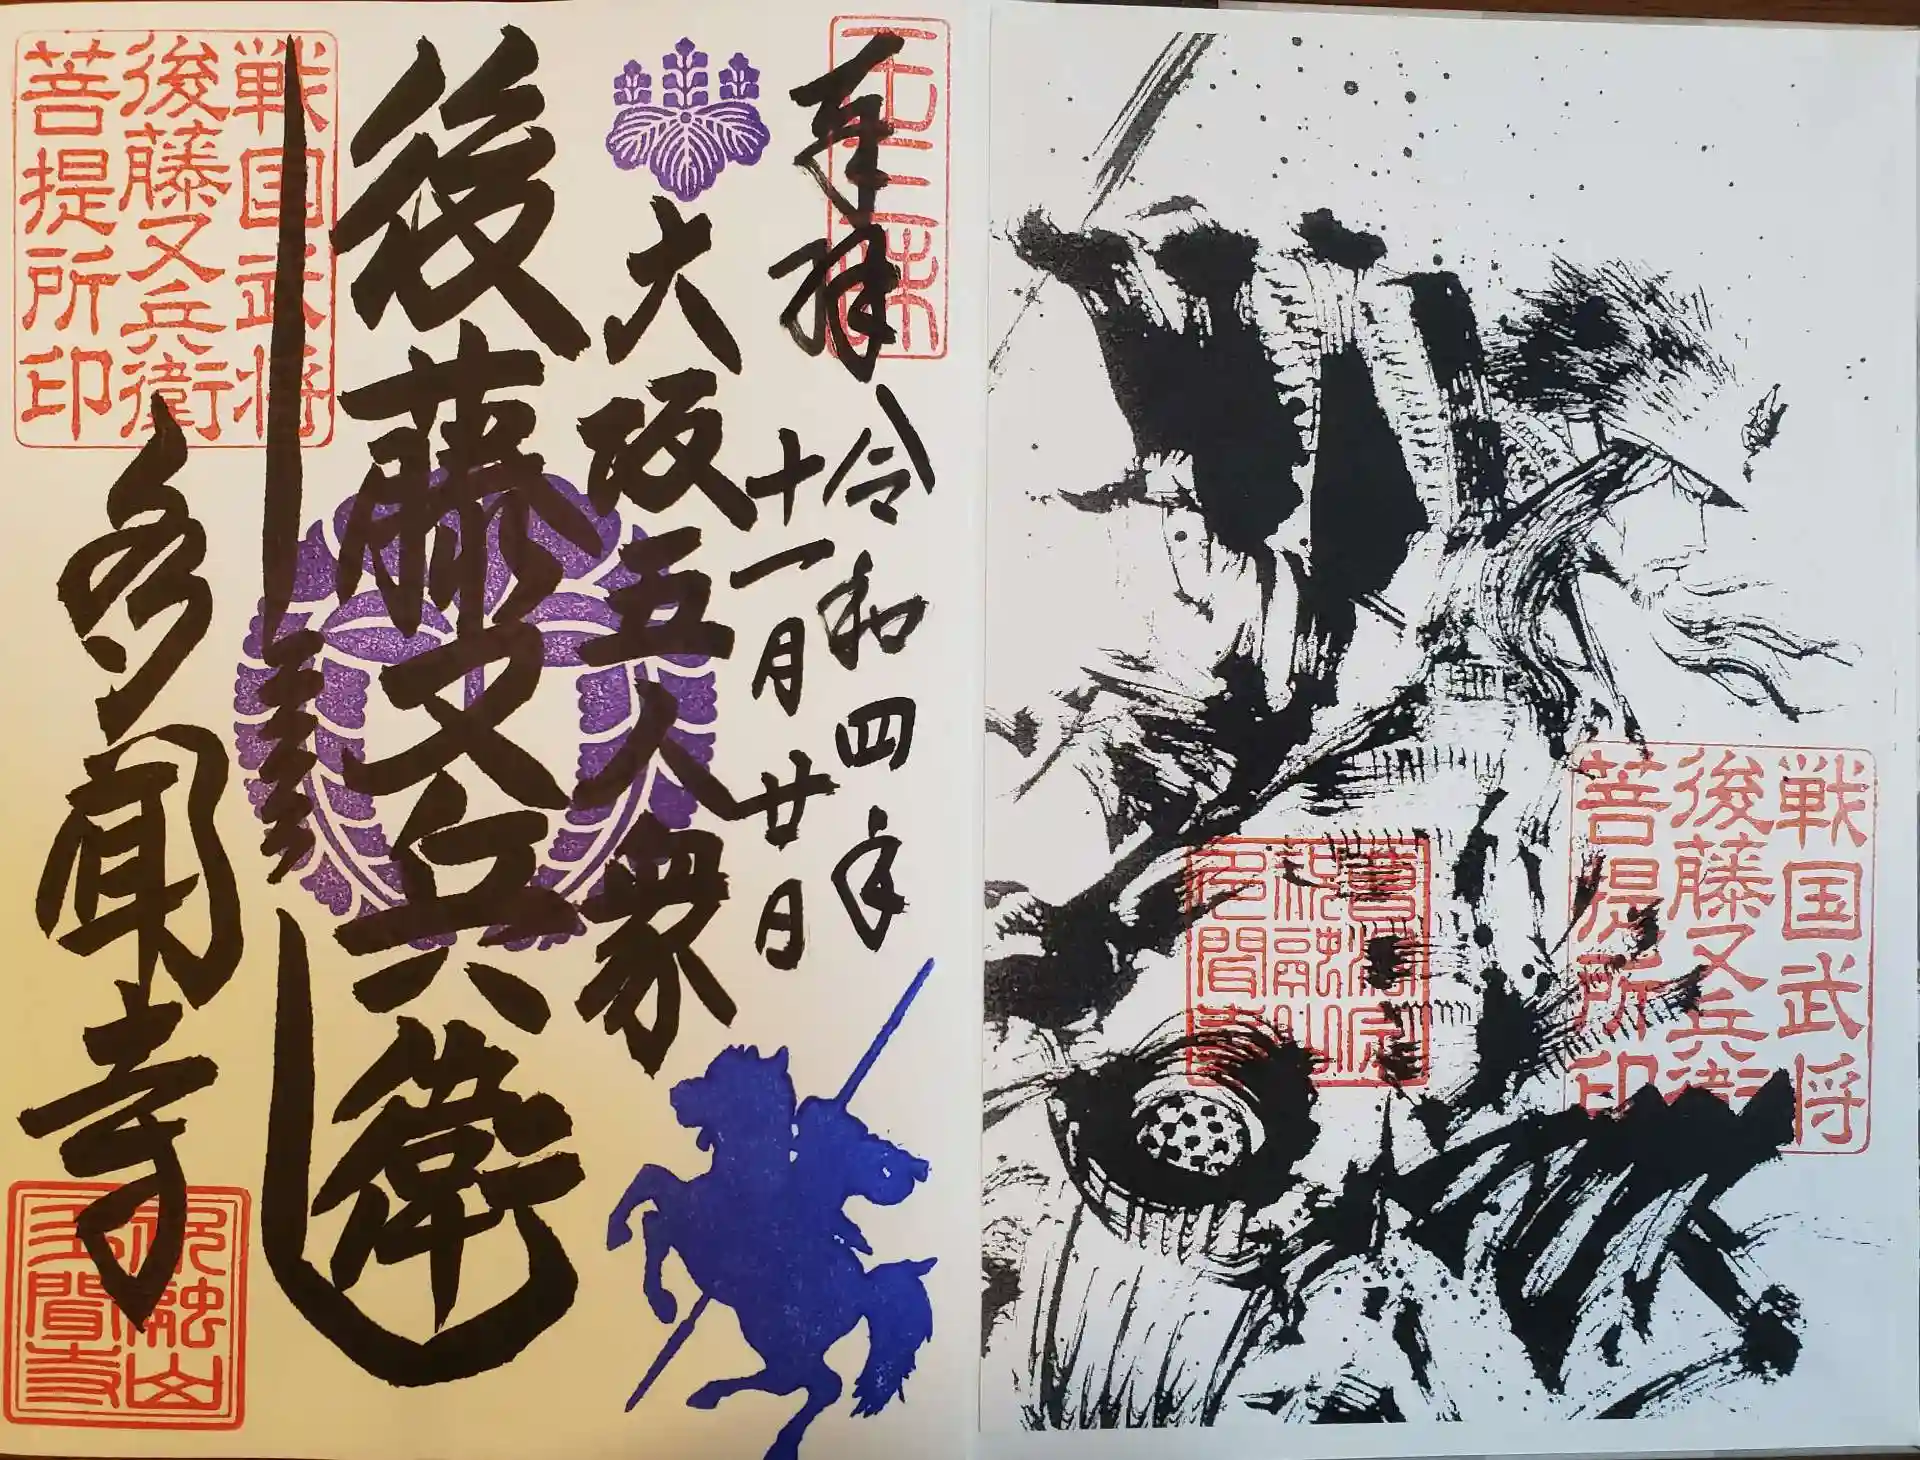 奉拝
令和四年
十一月廿日
大坂五人衆
後藤又兵衛
多聞寺
戦国武将
後藤又兵衛
菩提所印
祝融山
多聞寺
曹洞宗
祝融山
多聞寺
戦国武将
後藤又兵衛
菩提所印